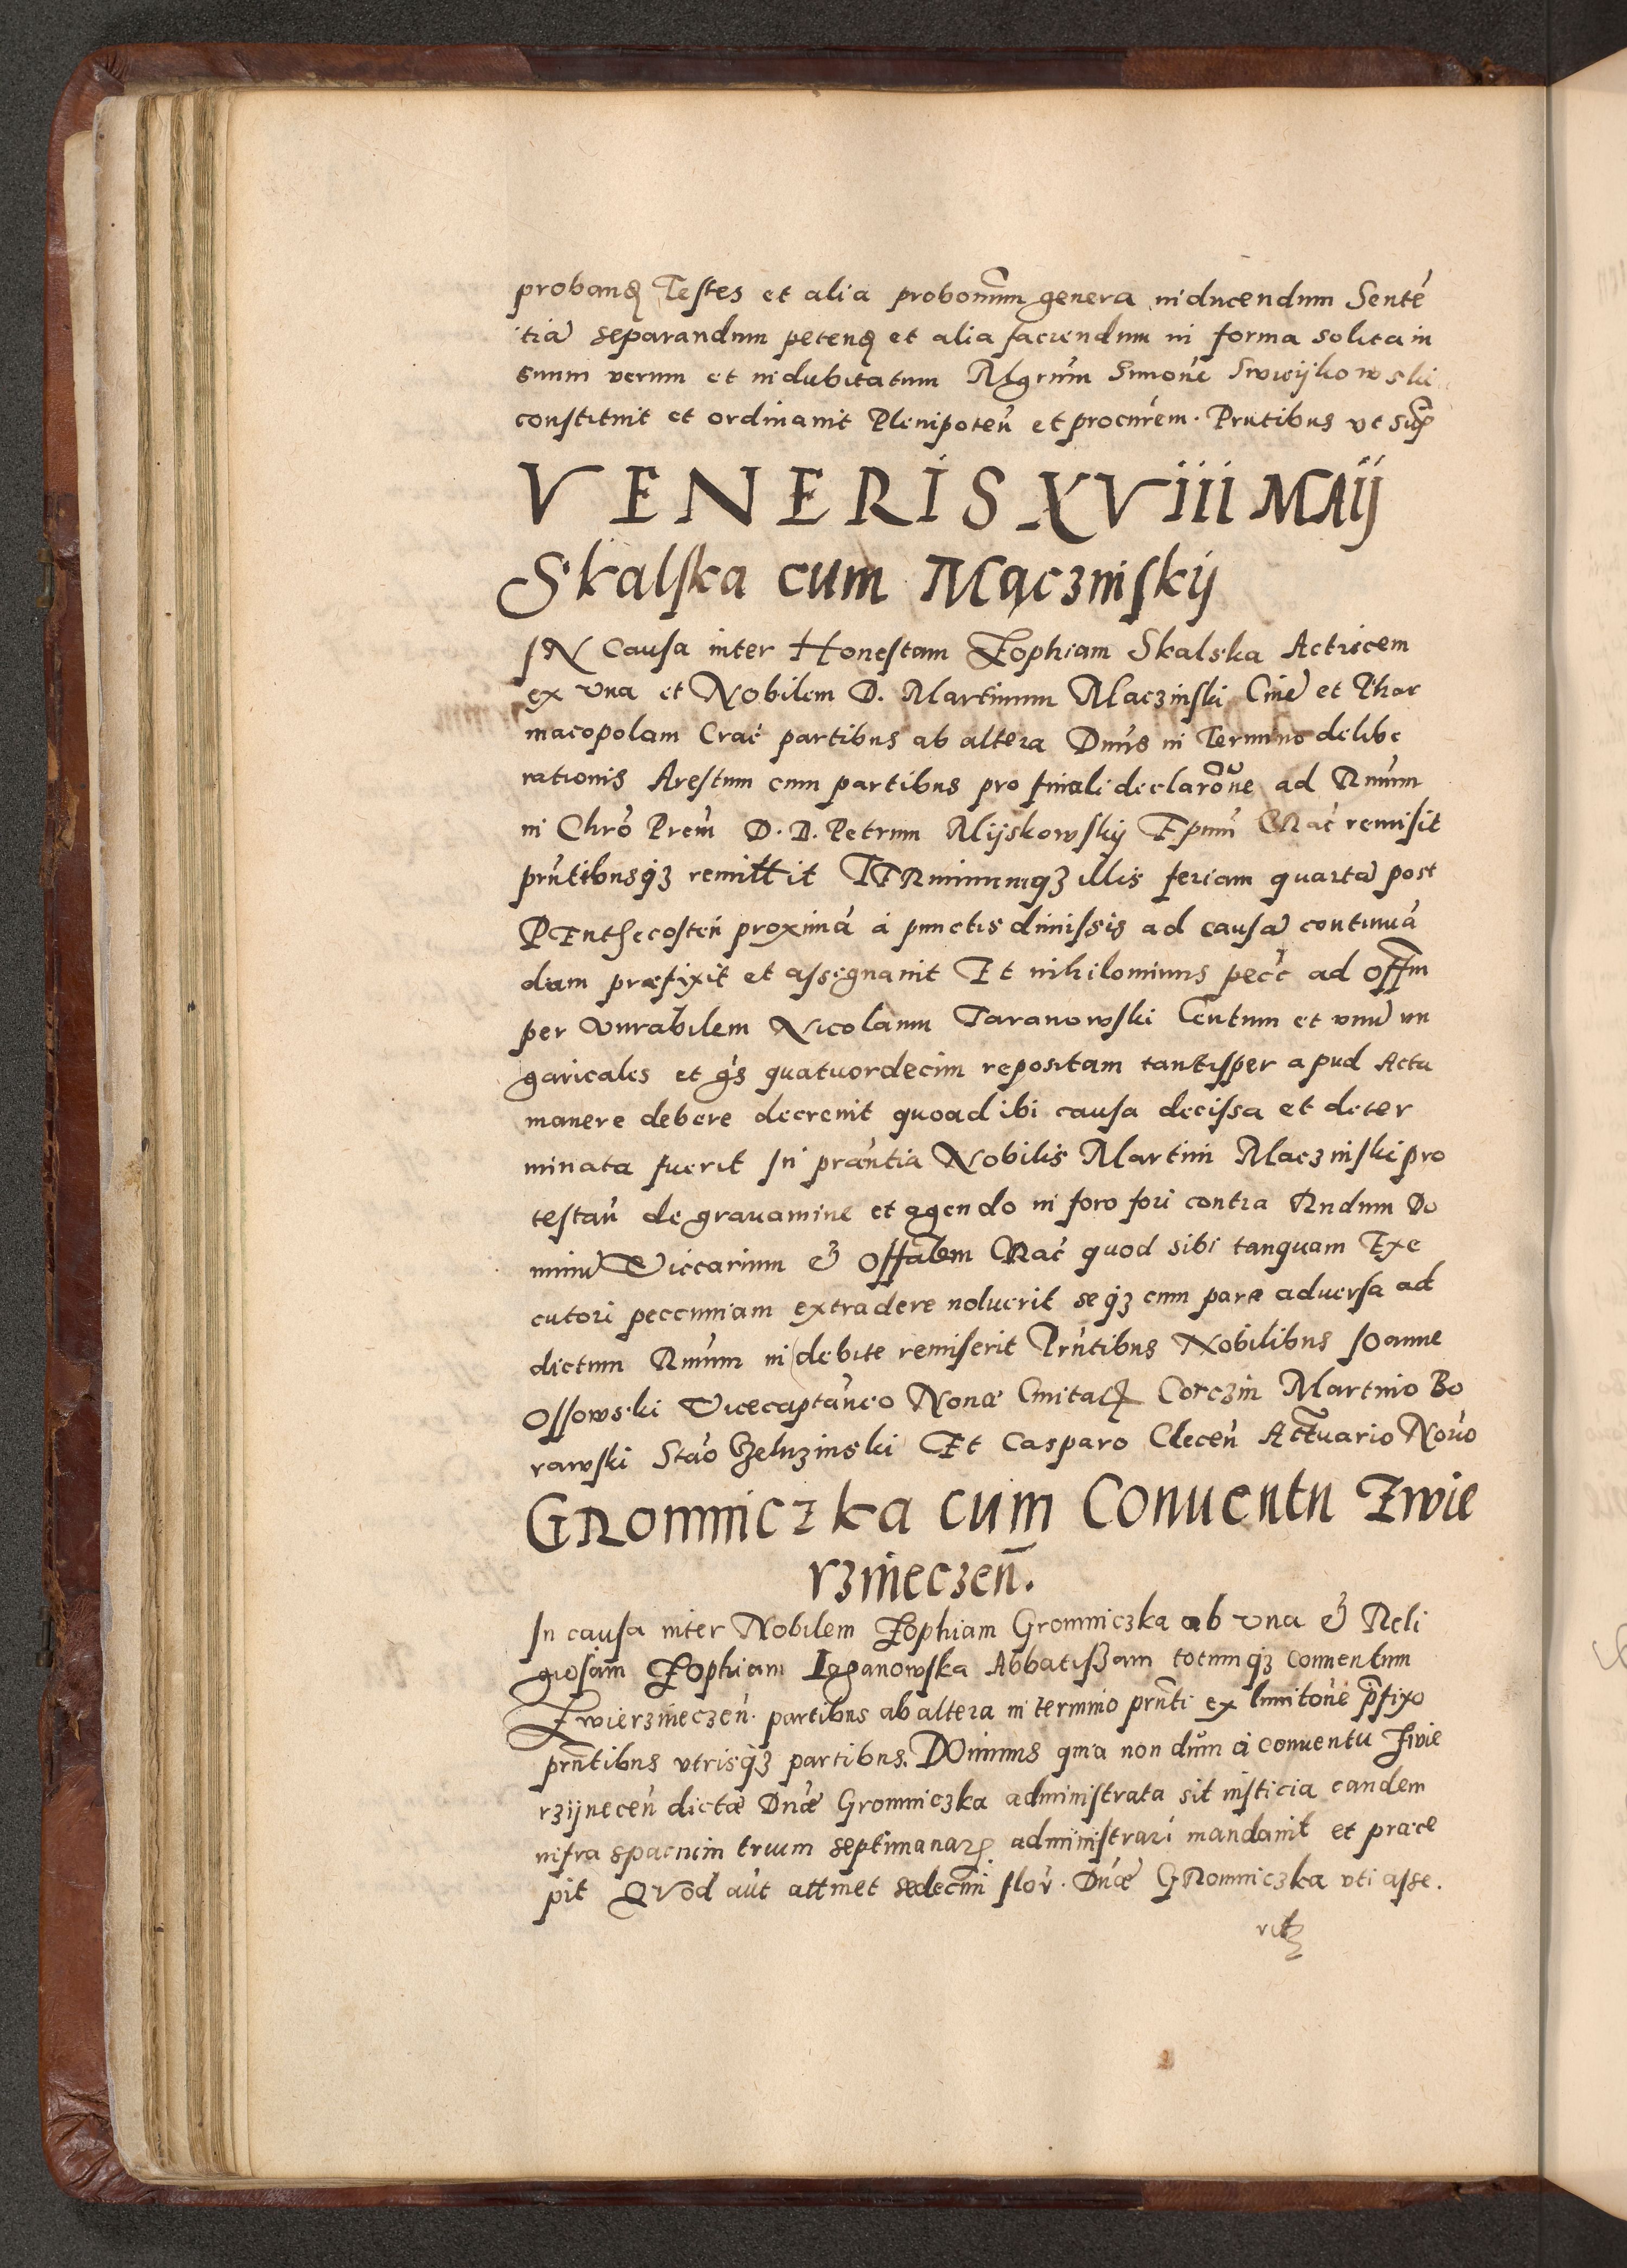 proband Testes et alia probonum genera inducendum Sentē
tiā separandum petend et alia faciendum in forma solita in
suum verum et indubitatum Mgrūm Simonē Swiijkowski
constituit et ordinauit Plenipoteñ et procūrem. Prntibus vt sup
VENERIS XViii MAij
Skalska cum Mączinskij
IN Causa inter Honestam Zophiam Skalska Actricem
ex vna et Nobilem D. Martinum Maczinski Ciuē et Phar
macopolam Crač partibus ab altera Dnūs in Termino delibe
rationis Arestum cum partibus pro finali declaroñe ad Rmūm
in Chrō Prem̄ D. D. Petrum Mijskowskij Epum̄ CRač remisit
prn̄tibusqȝ remittit TERminumqȝ illis feriam quartā post
PEnthecosten̄ proximā a punctis dimissis ad causā continuā
dam præfixit et assegnauit Et nihilominus pecč ad offm
per vnrabilem Nicolaum Taranowski Centum et vnū vn
garicales et gs̄ quatuordecim repositam tantisper apud Acta
manere debere decreuit quoad ibi causa decissa et deter
minata fuerit In præntia Nobilis Martini Maczinski pro
testan̄ de grauamine et agendo in foro fori contra Rndum Do
minū Viccarium & Offalem CRač quod sibi tanquam Exe
cutori peccuniam extradere noluerit seqȝ cum parte aduersa ad
dictum Rmūm indebite remiserit Prn̄tibus Nobilibus Ioanne
Ossowski Vicecaptāneo Nouæ Ciuitatis Corczin Martino Bo
rawski Stāo Zeluzinski Et Casparo Clecen̄ Actuario Nouo
GRomniczka cum Conuentu Zwie
rzinieczen̄.
In causa inter Nobilem Zophiam Gromniczka ab vna & Reli
giosam Zophiam Iaganowska Abbatissam totumqȝ conuentum
Zwierzinieczen̄. partibus ab altera in termino prn̄ti ex limitone p̄fixo
prn̄tibus vtrisqȝ partibus. DOminus quia non dum a conuentu Zwie
rzijnecen̄ dictæ Dnæ Gromniczka administrata sit iusticia eandem
infra spacium trium septimanarꝫ administrari mandauit et præce
pit QVod aut attinet sedecim flor̄. Dnæ GRomniczka vti asse.
rit